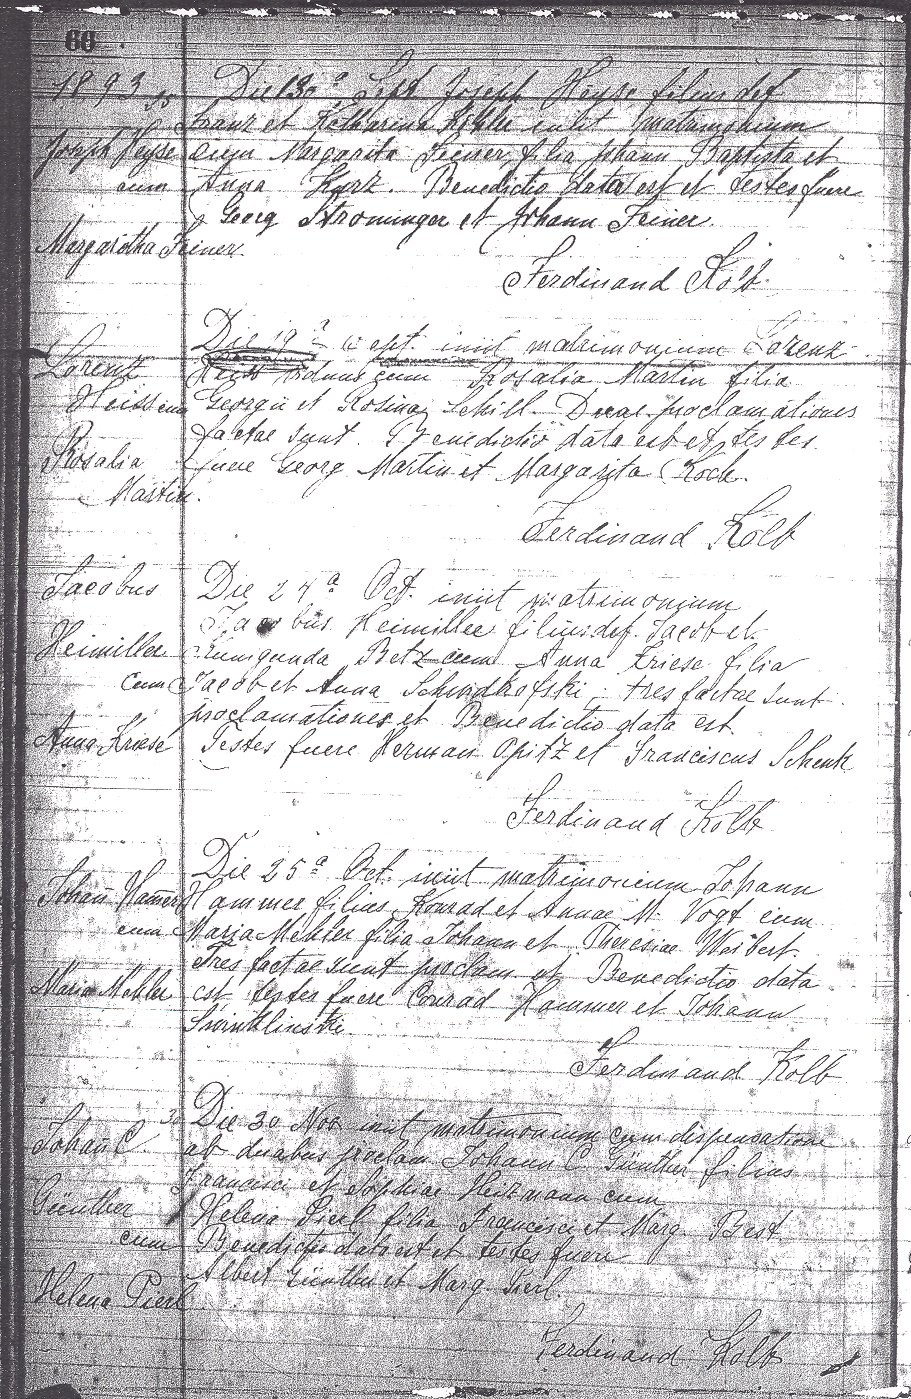 60
1893
Die 30ª Sept Joseph Heyse filius def
Franz et Katharina iniit matrimonium
Joseph Heyse
cum Margarita Feiner, filia Johann Baptista et
cum
Anna Kurz. Benedictio data est et testes fuere
Georg Strominger et Johann Feiner.
Margaretha Feiner
Ferdinand Kolb
Die 19ª Sept. iniit matrimonium Lorenz
Lorenz
viduus cum Rosalia Martin filia
Heiss cum
Georgii et Rosina Schill. Duae proclamationes
factae sunt. Benedictio data est et testes
Rosalia
fuere Georg Martin et Margarita Koch.
Martin.
Ferdinand Kolb
Jacobus
Die 24ª Oct. iniit matrimonium
Jacobus Heimiller filius def. Jacob et
Heimiller
Kunigunda Betz cum Anna Kriese filia
cum
Jacob et Anna ; tres factae sunt
proclamationes et Benedictio data est
Anna Kriese
Testes fuere Herman Opitz et Franciscus Schenk
Ferdinand Kolb
Die 25ª Oct. iniit matrimonium Johann
Johan Hamer
Hammer filius Konrad et Annae M. Vogt cum
cum
Maria Mehler filia Johann et Theresiae Weibert.
Tres factae sunt proclam et Benedictio data
Maria Mehler
est testes fuere Conrad Hammer et Johann
Ferdinand Kolb
Die 30 Nov iniit matrimonium cum dispensatione
Johan C.
ab duabus proclam Johann C Günther filius
Francisci et Sophiae Heizmann cum
Günther
Helena Pierl filia Francisci et Marg. Best
cum
Benedictio data est et testes fuere
Albert Günther et Marg. Pierl.
Helena Pierl
Ferdinand Kolb